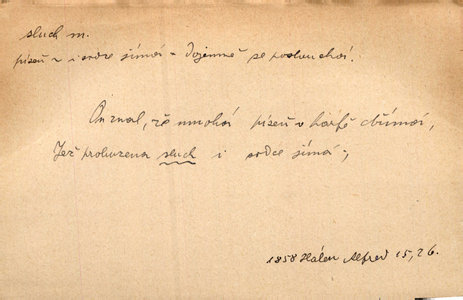 sluch m.
píseň ~ i srdce jímá - dojemně se poslouchá.
On znal, že mnohá píseň v harfě dřímá,
Jež probuzena sluch i srdce jímá;
1858 Hálek Alfred 15, 26.